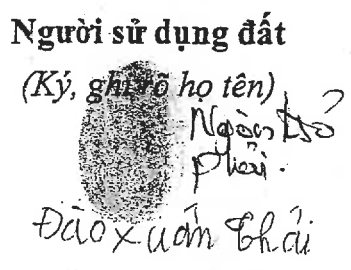 Người sử dụng đất
(Ký, ghi rõ họ tên)
Ngón trỏ
phải.
Đào Xuân Thái